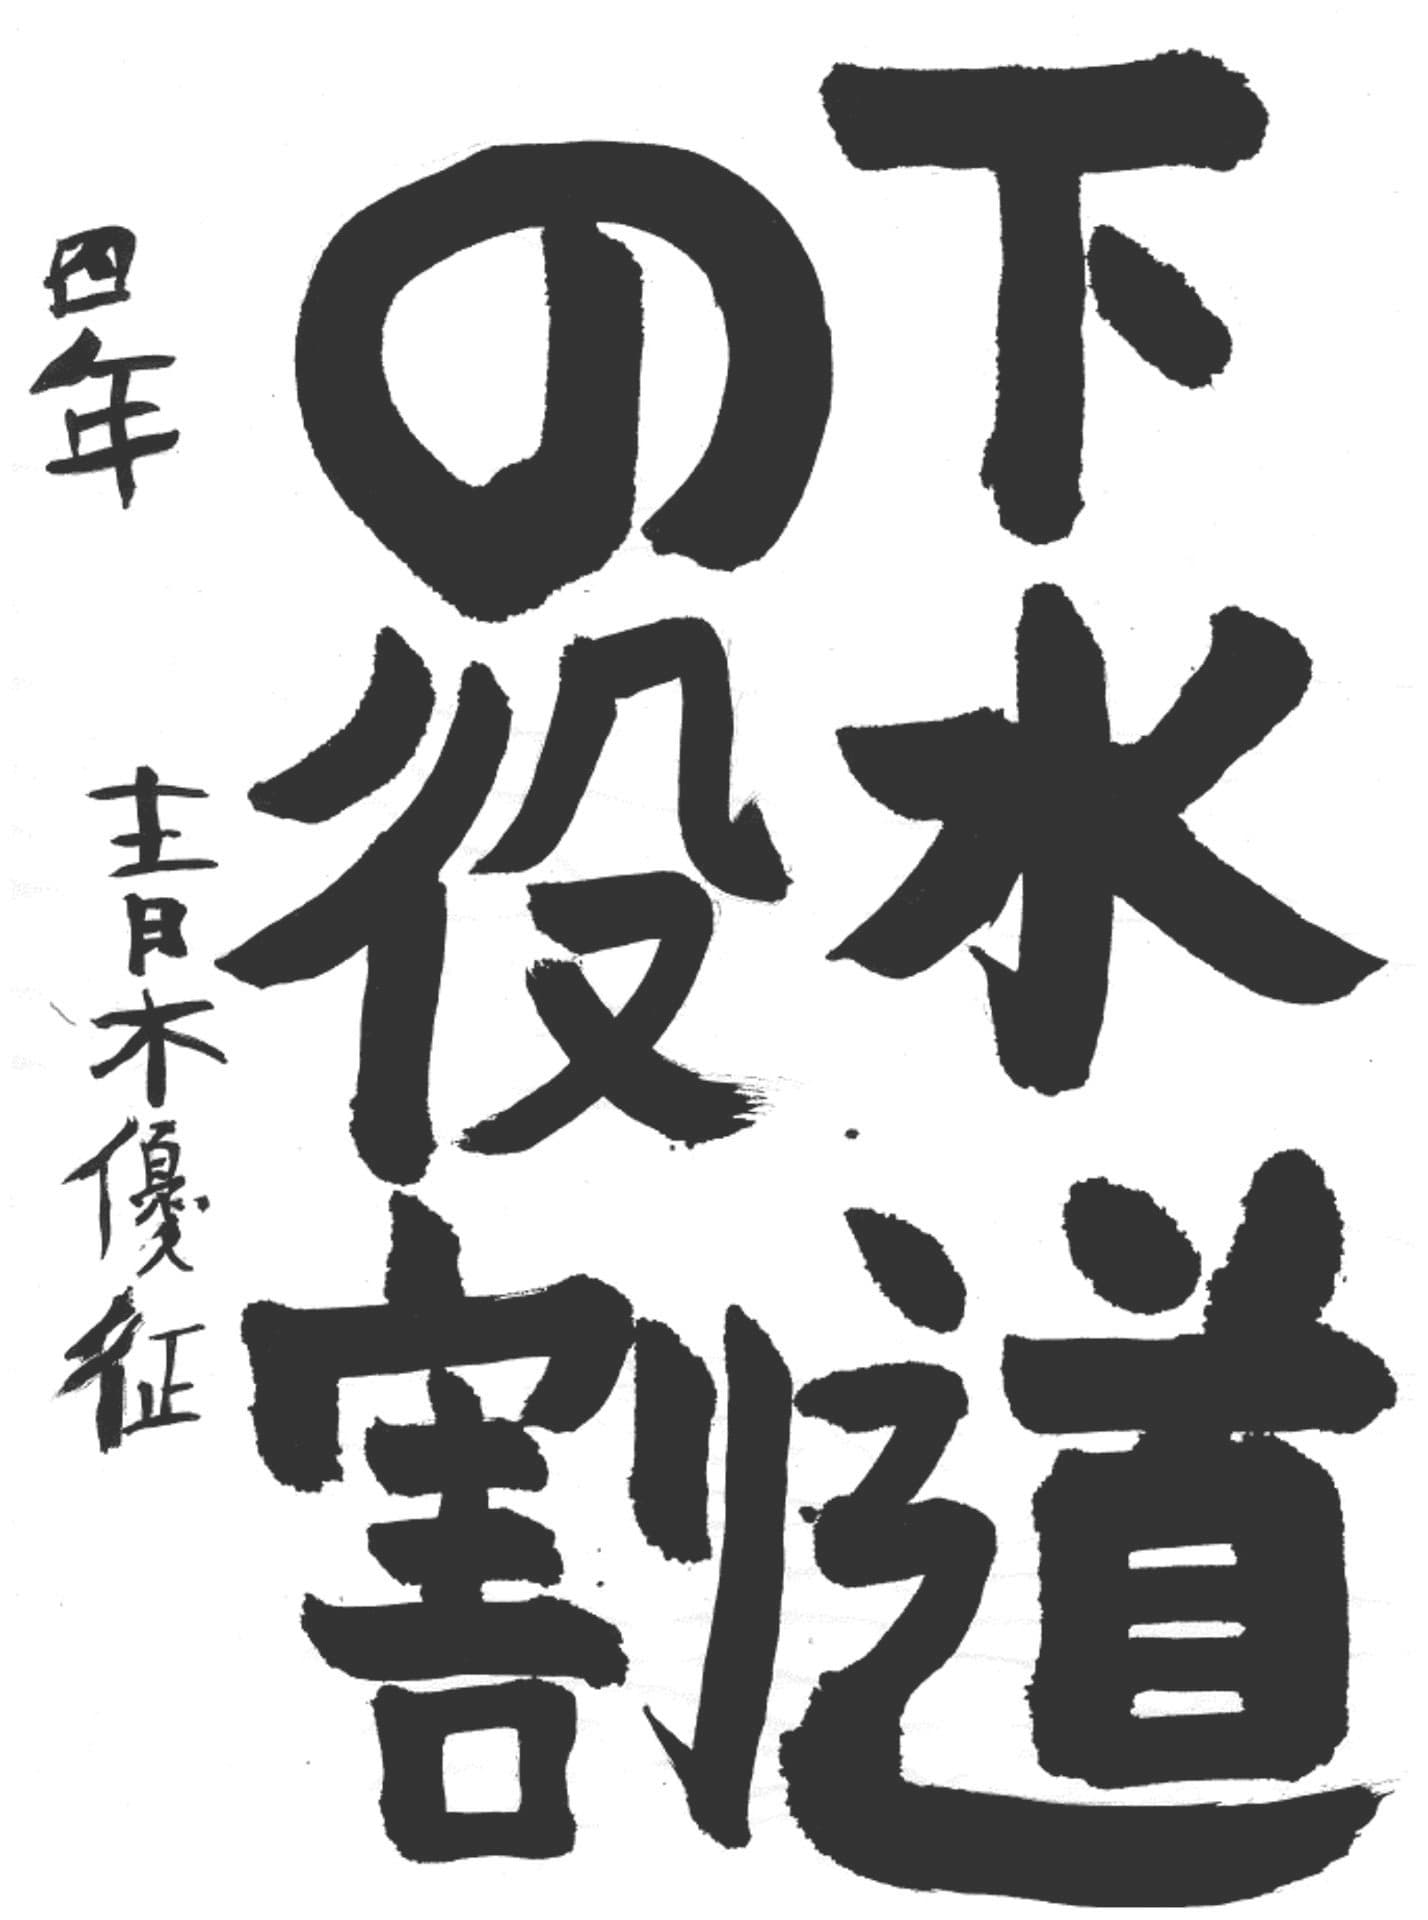 下水道
の役割
四年 青木優征